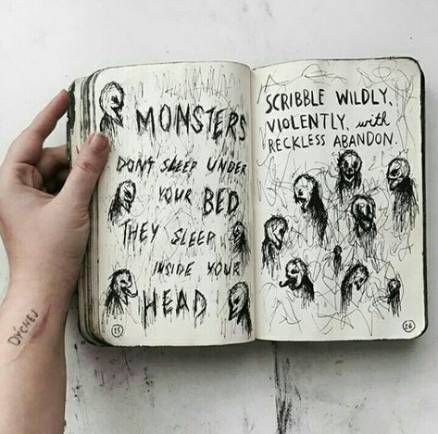 MONSTERS
DONT SLEEP UNDER
YOUR BED
THEY SLEEP
INSIDE YOUR
HEAD
25
SCRIBBLE WILDLY,
VIOLENTLY, with
RECKLESS ABANDON.
26